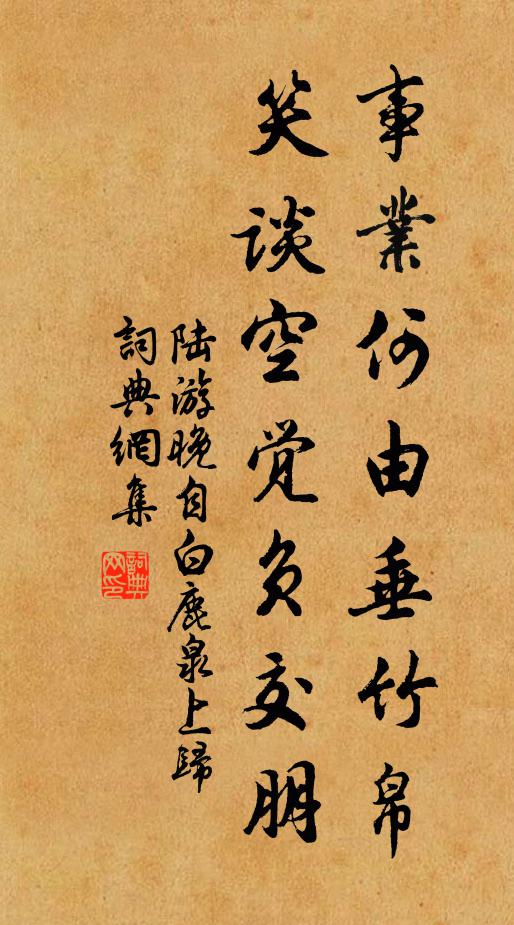 事業何由垂竹帛
笑談空覚負交朋
陆游晚自白鹿泉上歸
詞典網集
詞典网印